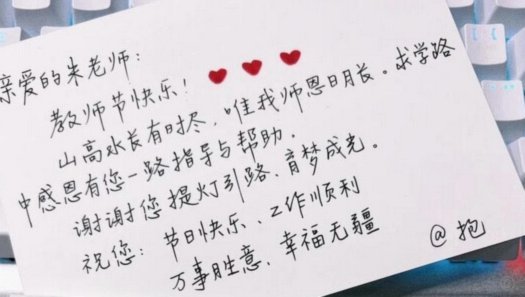 亲爱的朱老师：
教师节快乐！
山高水长有时尽，唯我师恩日月长。求学路
中感恩有您一路指导与帮助，
谢谢您提灯引路、育梦成光。
祝您：节日快乐、工作顺利
万事胜意、幸福无疆
@抱